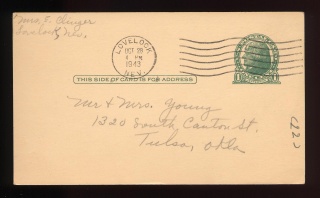 Lovelock, Nev.
LOVELOCK
OCT 28
PM
1943
NEV.
THIS SIDE OF CARD IS FOR ADDRESS
Mr & Mrs. Young
1320 South Canton St.
Tulsa, Okla
(22)